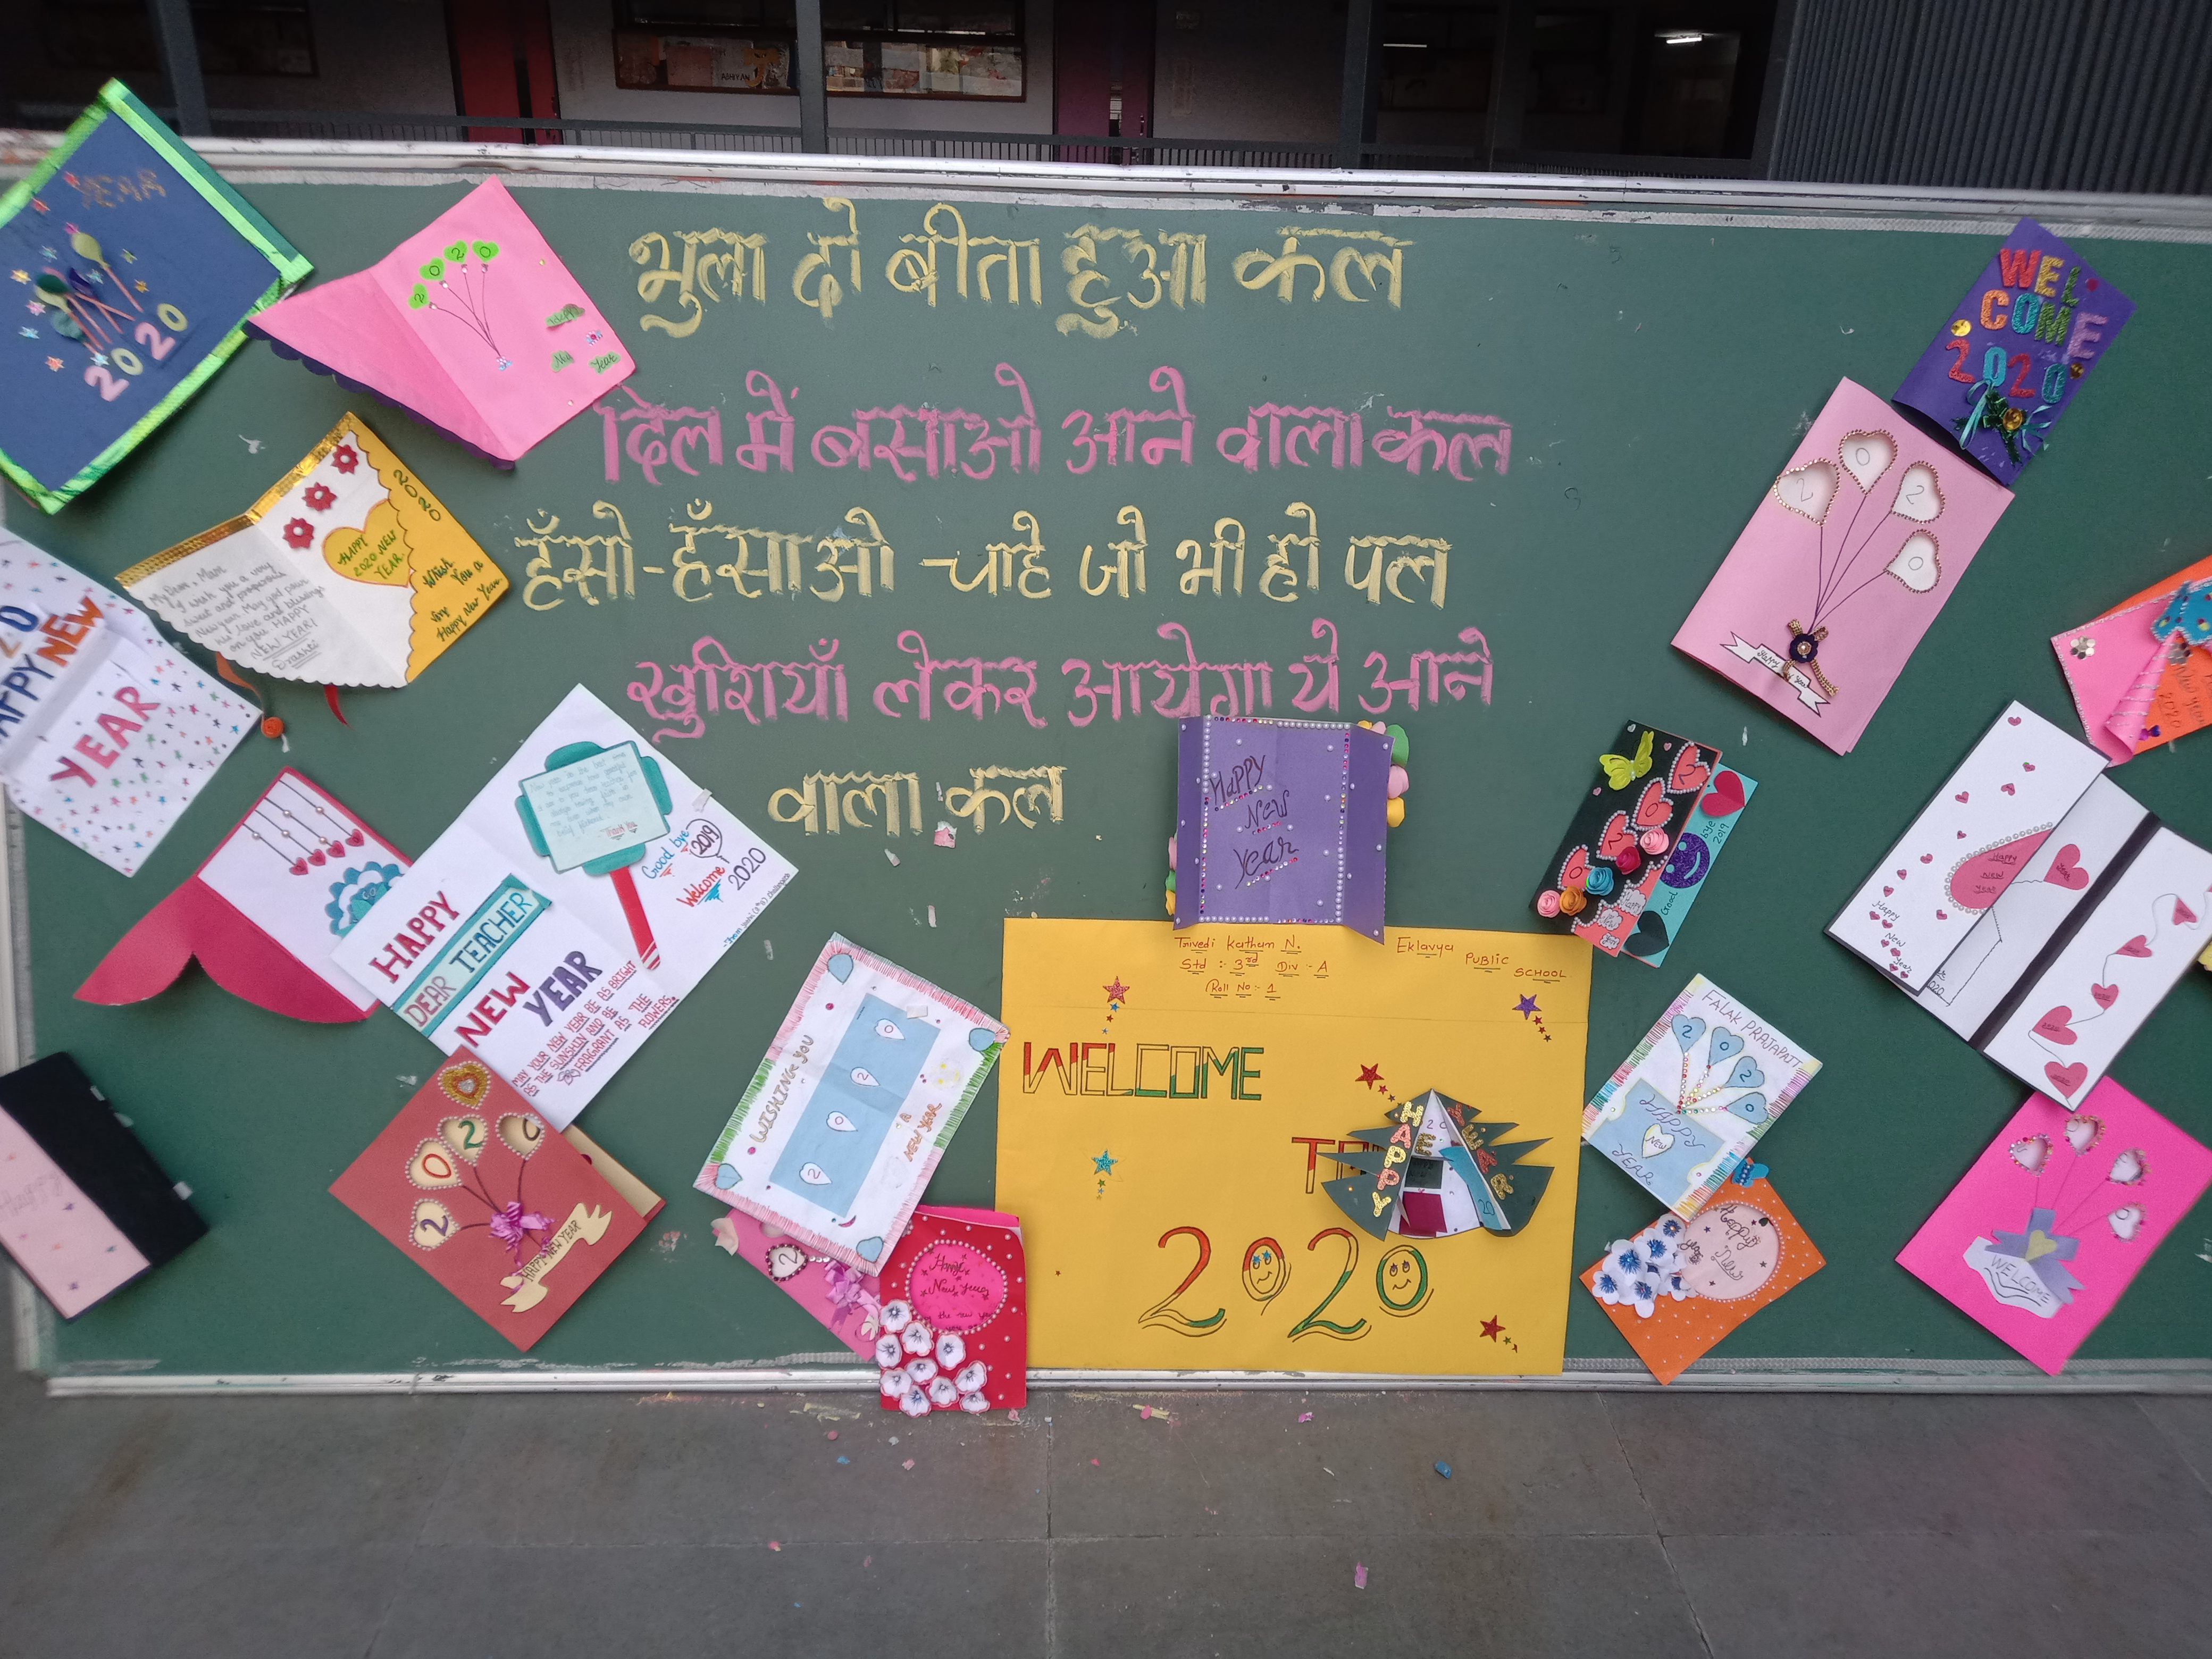 भुला दो बीता हुआ कल
दिल में बसाओ आने वाला कल
हँसो-हँसाओ चाहे जो भी हो पल
खुशियाँ लेकर आयेगा ये आने
वाला कल
YEAR
2020
2020
Happy
New Year
2020
HAPPY
2020 NEW
YEAR
Wish
You a
Very
Happy New Year
My Dear, Mam
I wish you a very
sweet and prosperous
New year. May god pour
his love and blessings
on you. HAPPY
NEW YEAR!
20
HAPPY NEW
YEAR
Good bye 2019
Welcome 2020
Thank you
HAPPY
DEAR TEACHER
NEW YEAR
MAY YOUR NEW YEAR BE AS BRIGHT
AS THE SUNSHIN AND BE
AS FRAGRANT AS THE
FLOWERS.
202
HAPPY NEW YEAR
WISHING YOU
2020
A
NEW YEAR
2
New Year
Happy
New
Year
Trivedi Katham N.
Std :- 3rd Div - A
Roll No :- 1
Eklavya
PUBLIC
SCHOOL
WELCOME
HAPPY
YEAR
2020
WELCOME
2020
2020
Happy
2020
Good bye 2019
FALAK PRAJAPATI
2020
HAPPY
NEW
YEAR
Happy
New
Year
Happy
New
Year
Happy
New
Year
2020
WELCOME